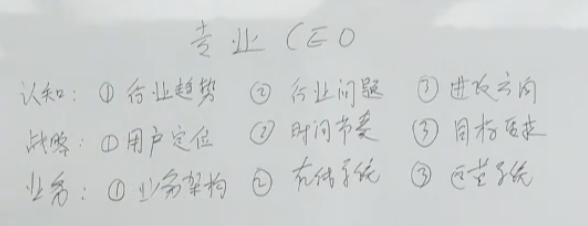 专业CEO
认知：①行业趋势 ②行业问题 ③进攻方向
战略：①用户定位 ②时间节奏 ③目标
业务：①业务架构 ② 系统 ③运营系统